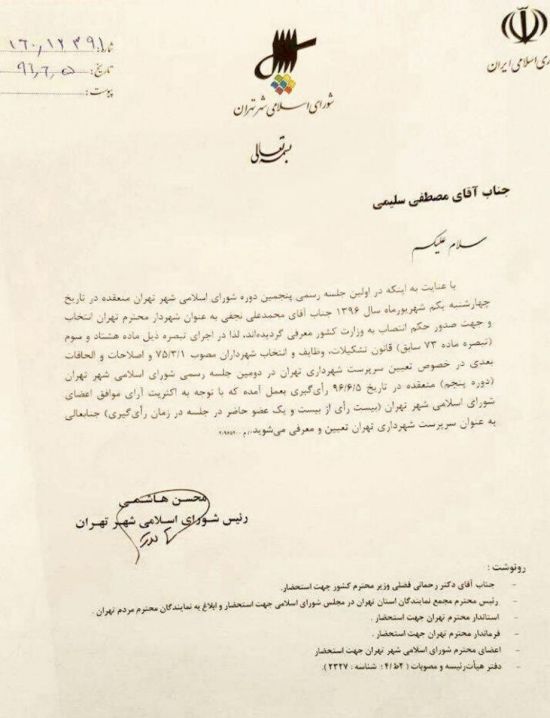 شماره: ۱۶۰,۱۲۳۹۱
تاریخ: ۹۶,۶,۵
پیوست:
شورای اسلامی شهر تهران
اسلامی ایران
بسمه تعالی
جناب آقای مصطفی سلیمی
سلام علیکم
با عنایت به اینکه در اولین جلسه رسمی پنجمین دوره شورای اسلامی شهر تهران منعقده در تاریخ
چهارشنبه یکم شهریورماه سال ۱۳۹۶ جناب آقای محمدعلی نجفی به عنوان شهردار محترم تهران انتخاب
و جهت صدور حکم انتصاب به وزارت کشور معرفی گردیده‌اند، لذا در اجرای تبصره ذیل ماده هشتاد و سوم
(تبصره ماده ۷۳ سابق) قانون تشکیلات، وظایف و انتخاب شهرداران مصوب ۷۵/۳/۱ و اصلاحات و الحاقات
بعدی در خصوص تعیین سرپرست شهرداری تهران در دومین جلسه رسمی شورای اسلامی شهر تهران
(دوره پنجم) منعقده در تاریخ ۹۶/۶/۵ رأی‌گیری بعمل آمده که با توجه به اکثریت آرای موافق اعضای
شورای اسلامی شهر تهران (بیست رأی از بیست و یک عضو حاضر در جلسه در زمان رأی‌گیری) جنابعالی
به عنوان سرپرست شهرداری تهران تعیین و معرفی می‌شوید.
محسن هاشمی
رئیس شورای اسلامی شهر تهران
رونوشت :
- جناب آقای دکتر رحمانی فضلی وزیر محترم کشور جهت استحضار.
- رئیس محترم مجمع نمایندگان استان تهران در مجلس شورای اسلامی جهت استحضار و ابلاغ به نمایندگان محترم مردم تهران .
- استاندار محترم تهران جهت استحضار .
- فرماندار محترم تهران جهت استحضار .
- اعضای محترم شورای اسلامی شهر تهران جهت استحضار
- دفتر هیأت‌رئیسه و مصوبات (۲ط/۴؛ شناسه : ۲۳۲۷).